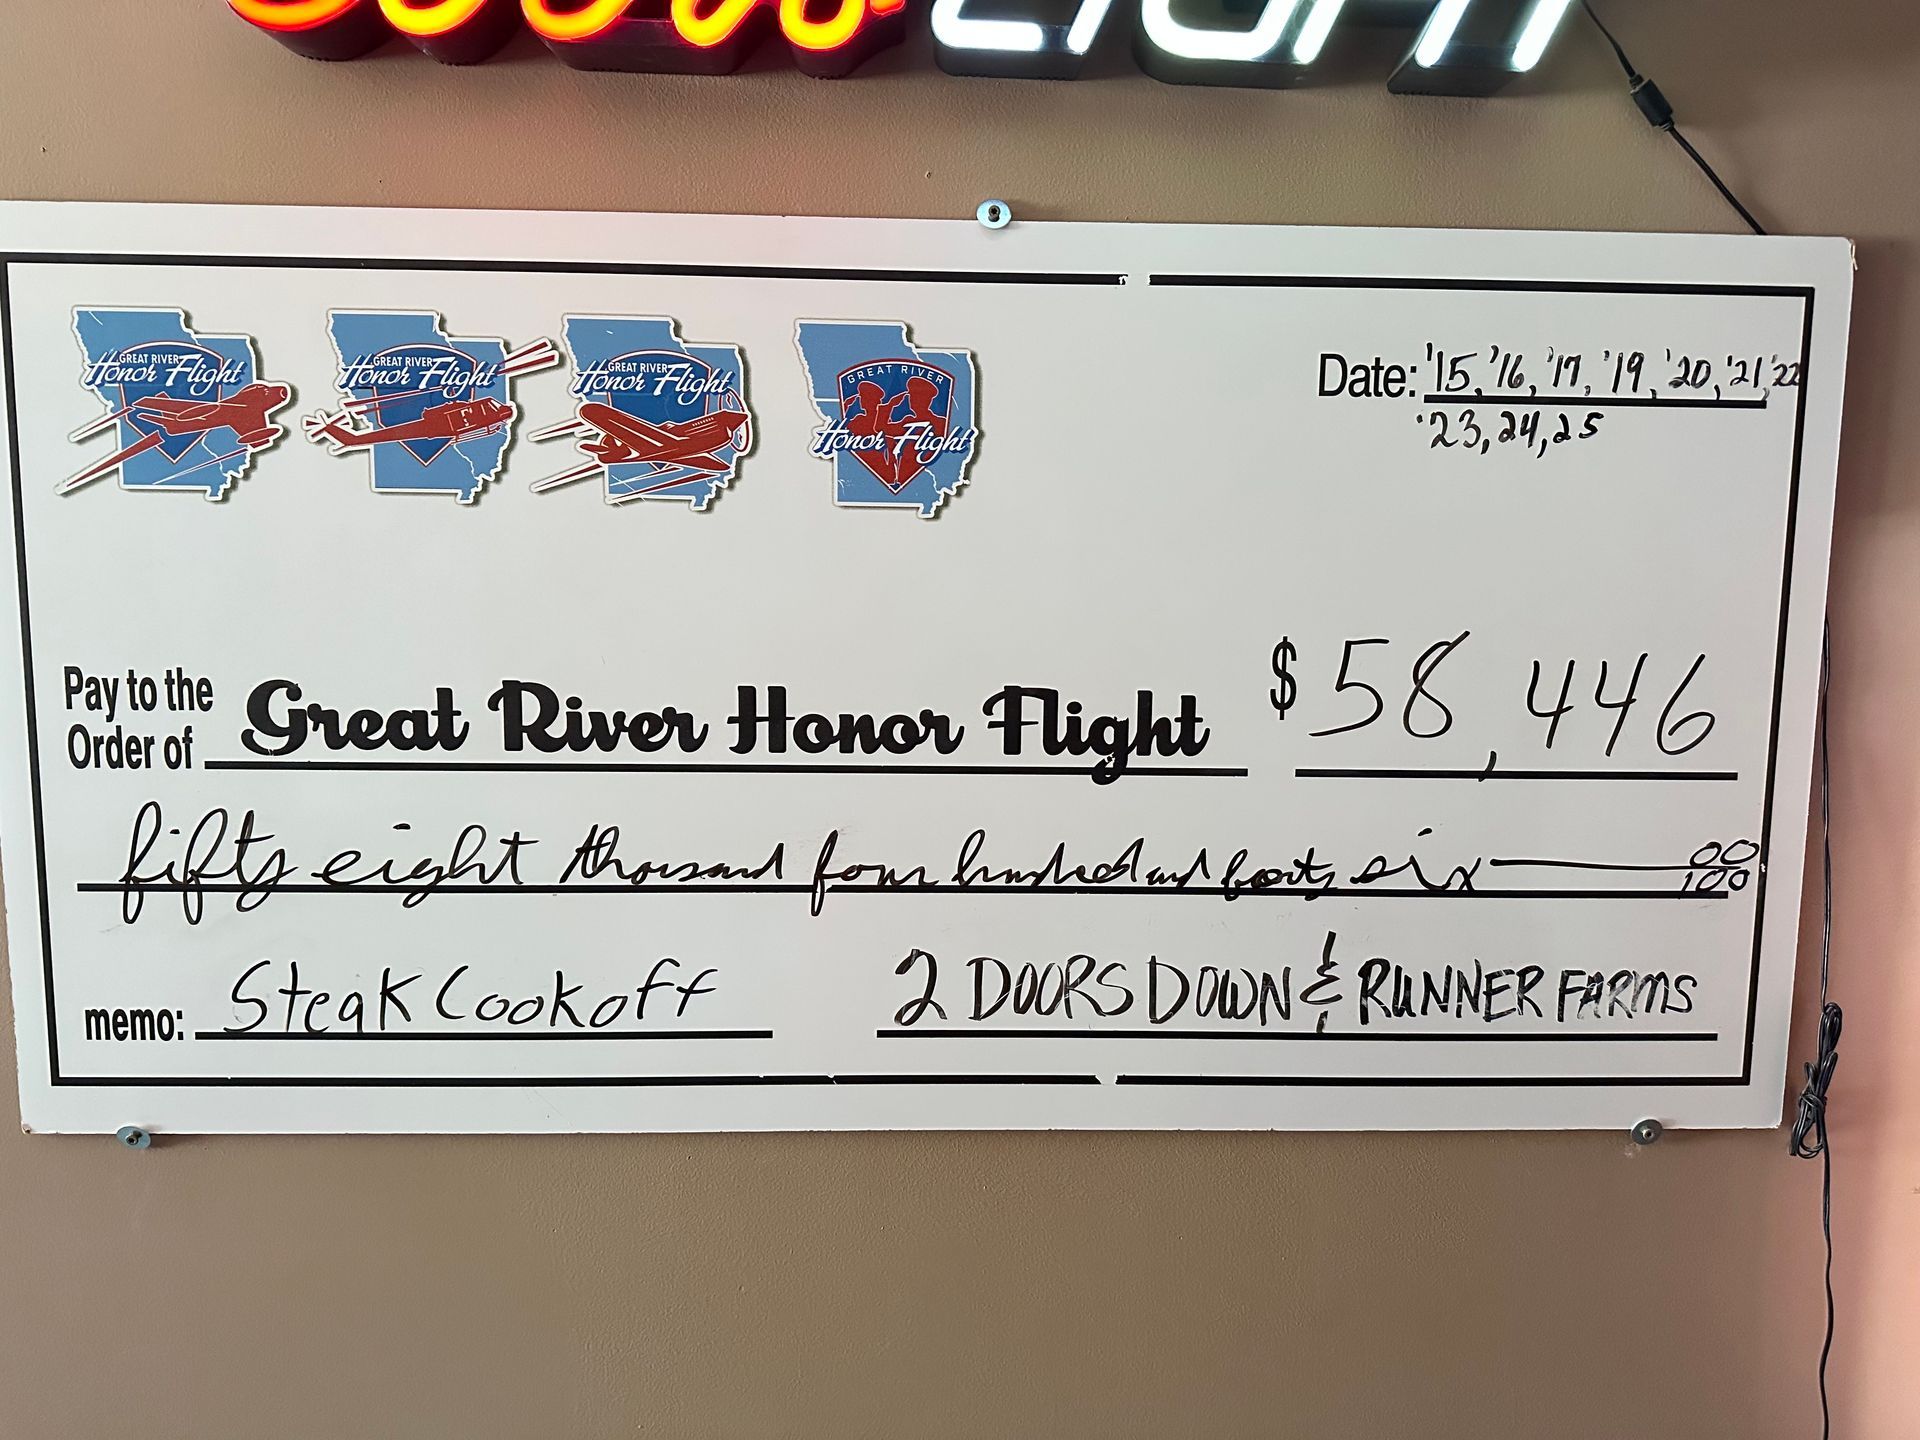 Coors LIGHT
GREAT RIVER
Honor Flight
GREAT RIVER
Honor Flight
GREAT RIVER
Honor Flight
GREAT RIVER
Honor Flight
Date: '15, '16, '17, '19, '20, '21, '22
'23, 24, 25
Pay to the
Order of Great River Honor Flight $ 58,446
fifty eight thousand four hundred and forty six 00/100
memo: Steak Cookoff 2 DOORS DOWN & RUNNER FARMS